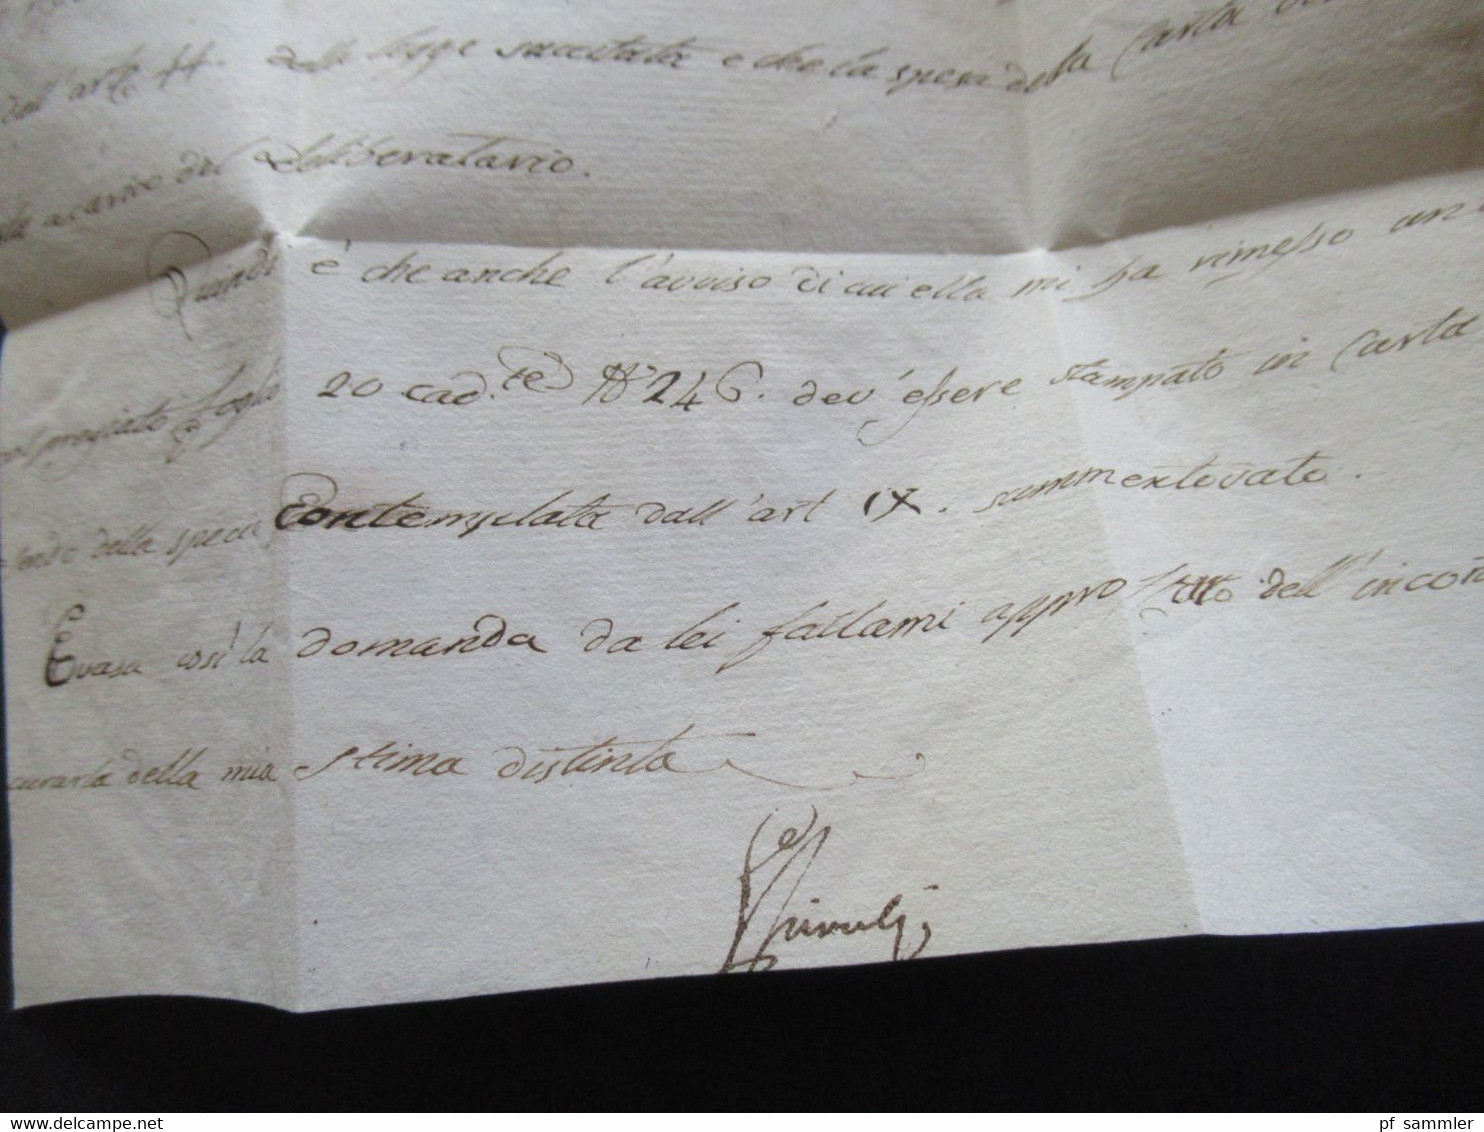 dall' art. 44. della legge succitata e che la spesa della Carta
a carico del deliberatario.
Quindi è che anche l'avviso di cui ella mi ha rimesso un
pregiato foglio 20 cad.te N° 246. dev'essere stampato in Carta
bollo della specie Contemplata dall'art IX. summentovato.
Evasa così la domanda da lei fattami appro dell'incontro
della mia stima distinta
delcampe.net
pf_sammler